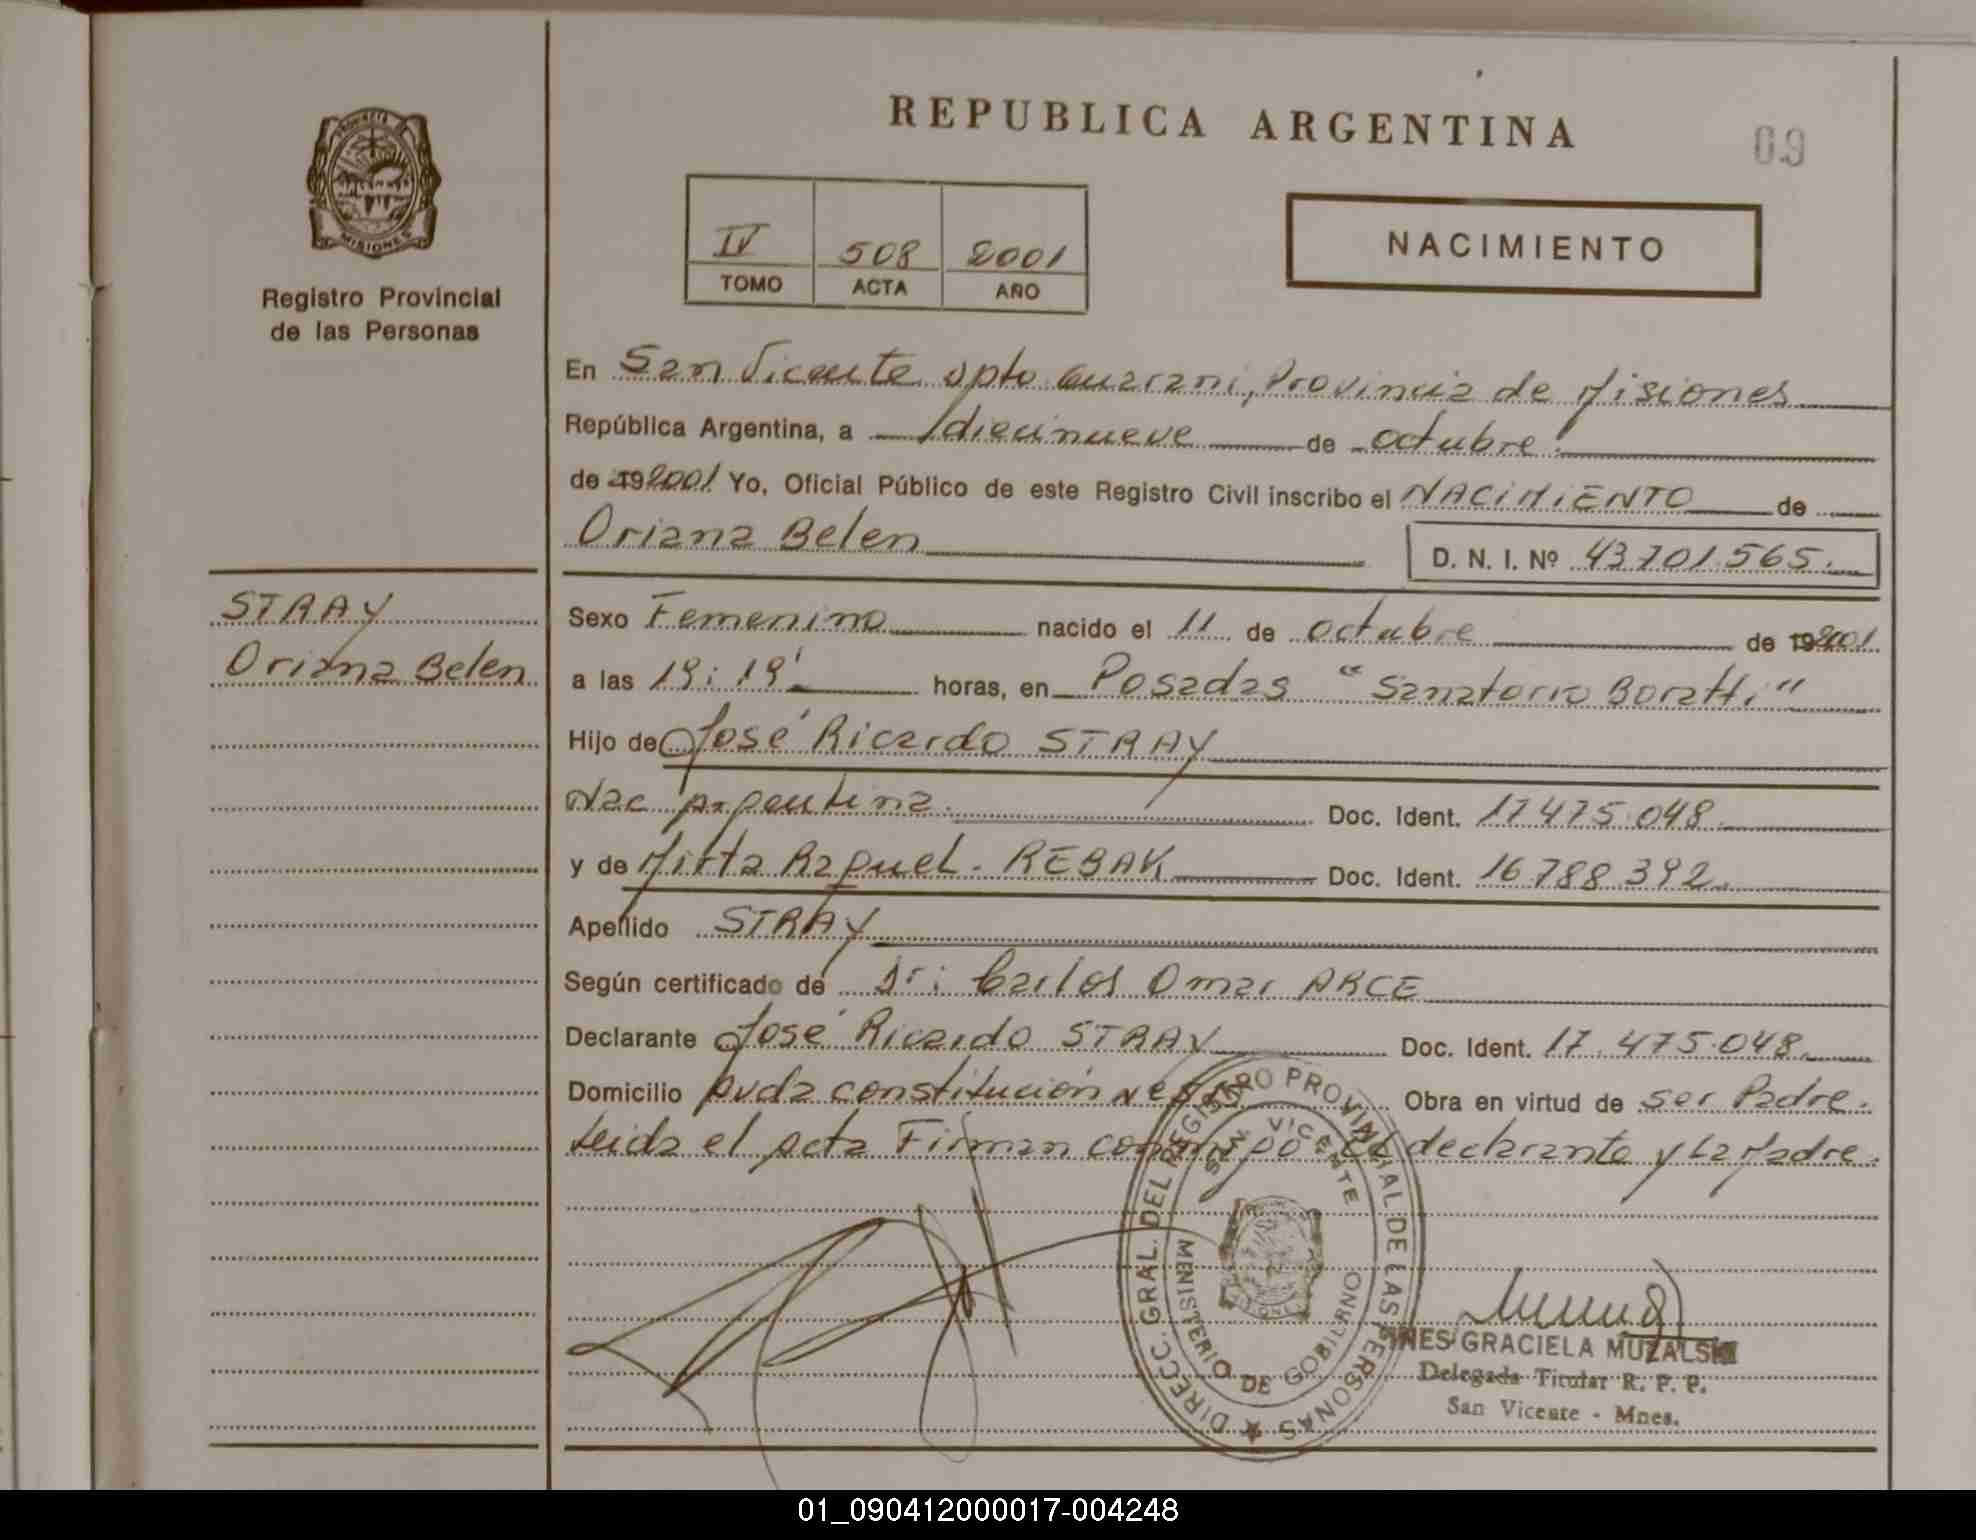 REPUBLICA ARGENTINA
09
PROVINCIA DE
MISIONES
Registro Provincial
de las Personas
IV 508 2001
TOMO ACTA AÑO
NACIMIENTO
En San Vicente Dpto Guarani, Provincia de Misiones
República Argentina, a diecinueve de octubre.
de 19 2001 Yo, Oficial Público de este Registro Civil inscribo el NACIMIENTO de
Oriana Belen
D. N. I. Nº 43.701.565.
STRAY
Oriana Belen
Sexo Femenino nacido el 11 de octubre de 19 2001
a las 19:19' horas, en Posadas "Sanatorio Boratti"
Hijo de José Ricardo STRAY
Nac Argentina. Doc. Ident. 17.475.048.
y de Mirta Raquel - REBAK Doc. Ident. 16.788.392.
Apellido STRAY
Según certificado de Dr: Carlos Omar ARCE
Declarante José Ricardo STRAY Doc. Ident. 17.475.048.
Domicilio Avda constitución Obra en virtud de ser Padre.
Leida el acta Firman conmigo el declarante y La Madre.
DIRECC. GRAL. DEL REGISTRO PROVINCIAL DE LAS PERSONAS
SAN VICENTE
MINISTERIO DE GOBIERNO
INES GRACIELA MUZALSKI
Delegada Titular R. P. P.
San Vicente - Mnes.
01_090412000017-004248